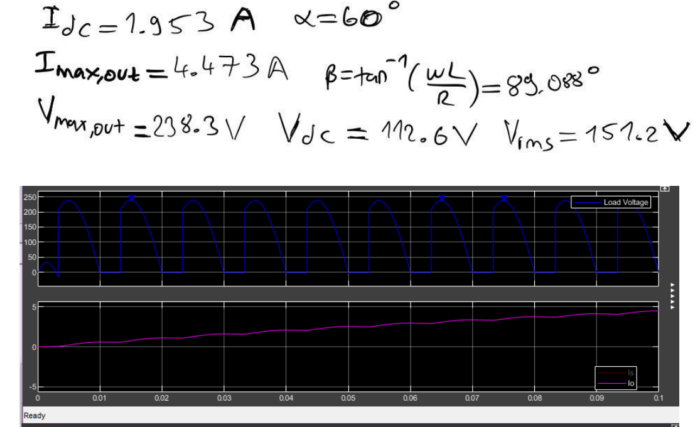 Idc = 1.953 A α = 60°
Imax,out = 4.473 A β = tan⁻¹(wL/R) = 89.088°
Vmax,out = 238.3 V Vdc = 112.6 V Vrms = 151.2 V
250
200
150
100
50
0
Load Voltage
5
0
-5
Is
Io
0 0.01 0.02 0.03 0.04 0.05 0.06 0.07 0.08 0.09 0.1
Ready